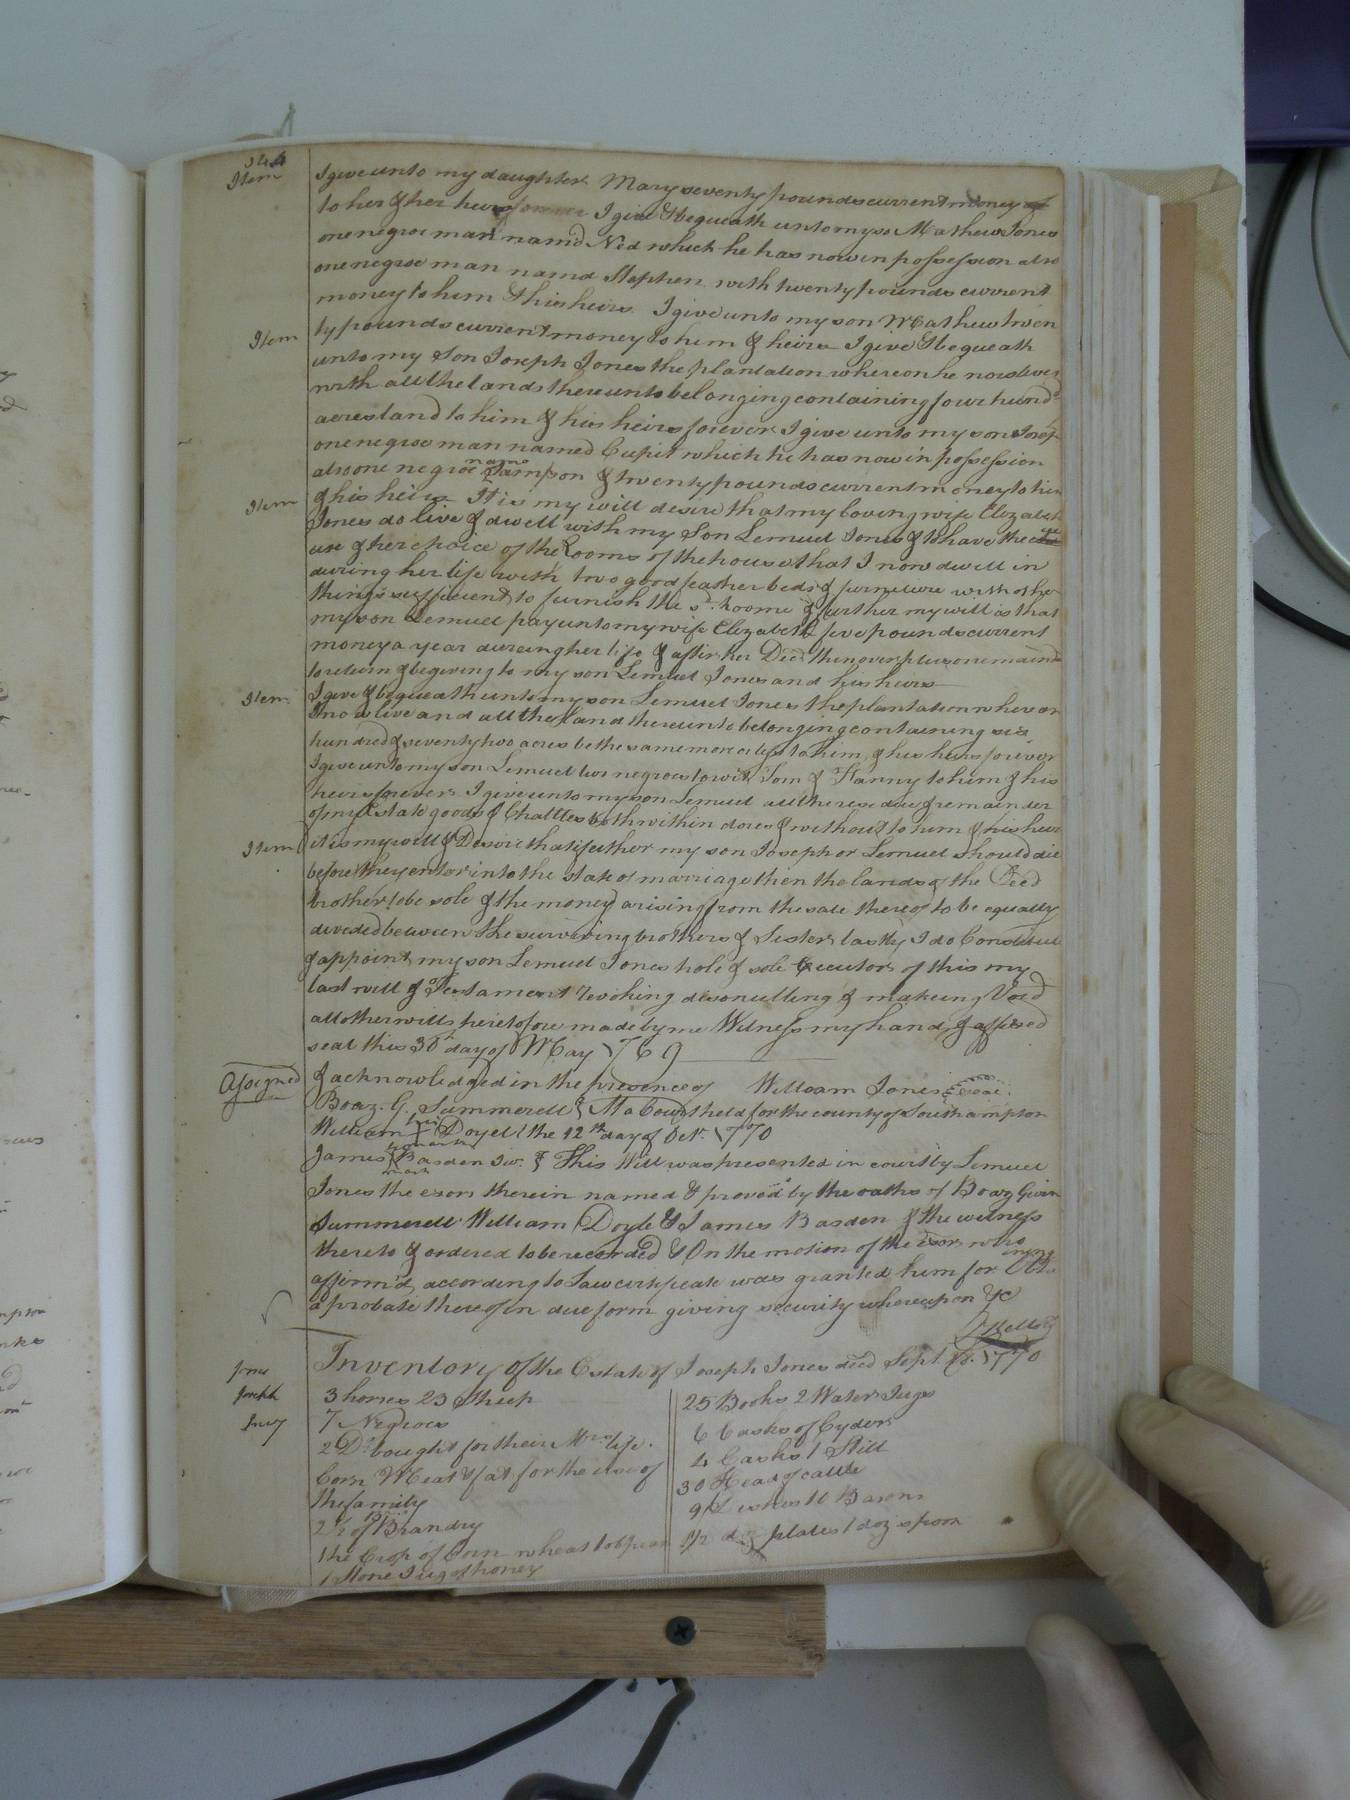 Item I give unto my daughter Mary seventy pounds current money
to her & her heirs forever I give & bequeath unto my so Mathew Jones
one negroe man namd Ned which he has now in possession also
one negroe man namd Stephen with twenty pounds current
money to him & his heirs I give unto my son Mathew twen
Item ty pounds current money to him & heirs I give & bequeath
unto my Son Joseph Jones the plantation whereon he now lives
with all the lands thereunto belonging containing four hund
acres land to him & his heirs forever I give unto my son Josep
one negroe man named Cupit which he has now in possession
also one negroe Sampson & twenty pounds current money to him
Item & his heirs It is my will desire that my loving wife Elizabeth
Jones do live & dwell with my Son Lemuel Jones & to have the use
use of her choice of the Rooms of the house that I now dwell in
during her life with two good feather beds & furniture with other
things sufficient to furnish the sd. Roome & further my will is that
my son Lemuel pay unto my wife Elizabeth five pounds current
money a year dureing her life & after her Deed then overplus
to return & begiving to my son Lemuel Jones and his heirs
Item I give & bequeath unto my son Lemuel Jones the plantation where on
I now live and all the land thereunto belonging containing six
hundred & seventy two acres be the same more or less to him & his heirs forever
I give unto my son Lemuel two negroes towit Tom & Fanny to him & his
heirs forever I give unto my son Lemuel all the resedue & remainder
of my Estate goods & Chattles both within dores & without to him & his heirs
Item it is my will & Desire that if either my son Joseph or Lemuel should die
before they enter into the state of marriage then the lands of the Deed
brother to be sole & the money arising from the sale thereof to be equally
devided between the surviving brothers & Sisters lastly I do Constitute
& appoint my son Lemuel Jones hole & sole Executor of this my
last will & Testament revoking disonulling & makeing Void
all other wills heretofore made by me Witness my hand & affixed
seal this 30th day of May 1769
Assigned & acknowledged in the presence of William Jones Seal
Boaz. G. Summerell At a Court held for the county of Southampton
William his Doyel the 12th day of Octr. 1770
James Basden Jur. This Will was presented in court by Lemuel
mark
Jones the exors therein named & proved by the oaths of Boaz Gwin
Summerell William Doyle & James Basden & the witness
thereto & ordered to be recorded & On the motion of the Exor who
affirm'd according to Law certificate was granted him for Obt
a probate thereof in due form giving security whereupon &c
Inventory of the Estate of Joseph Jones deed Sept 1770
Jones
Joseph
Invy
3 horses 23 Sheep
7 Negroes
2 Do. bought for their Mrs life.
Corn Meat & fat for the use of
the family
2 1/2 of Brandy
The Crop of Corn wheat
1 Stone Jug of honey
25 Books 2 Water Jugs
6 Casks of Cyder
4 Casks 1 Still
30 Head of cattle
9 Dishes 10 Basons
1/2 doz plates 1 doz spoon